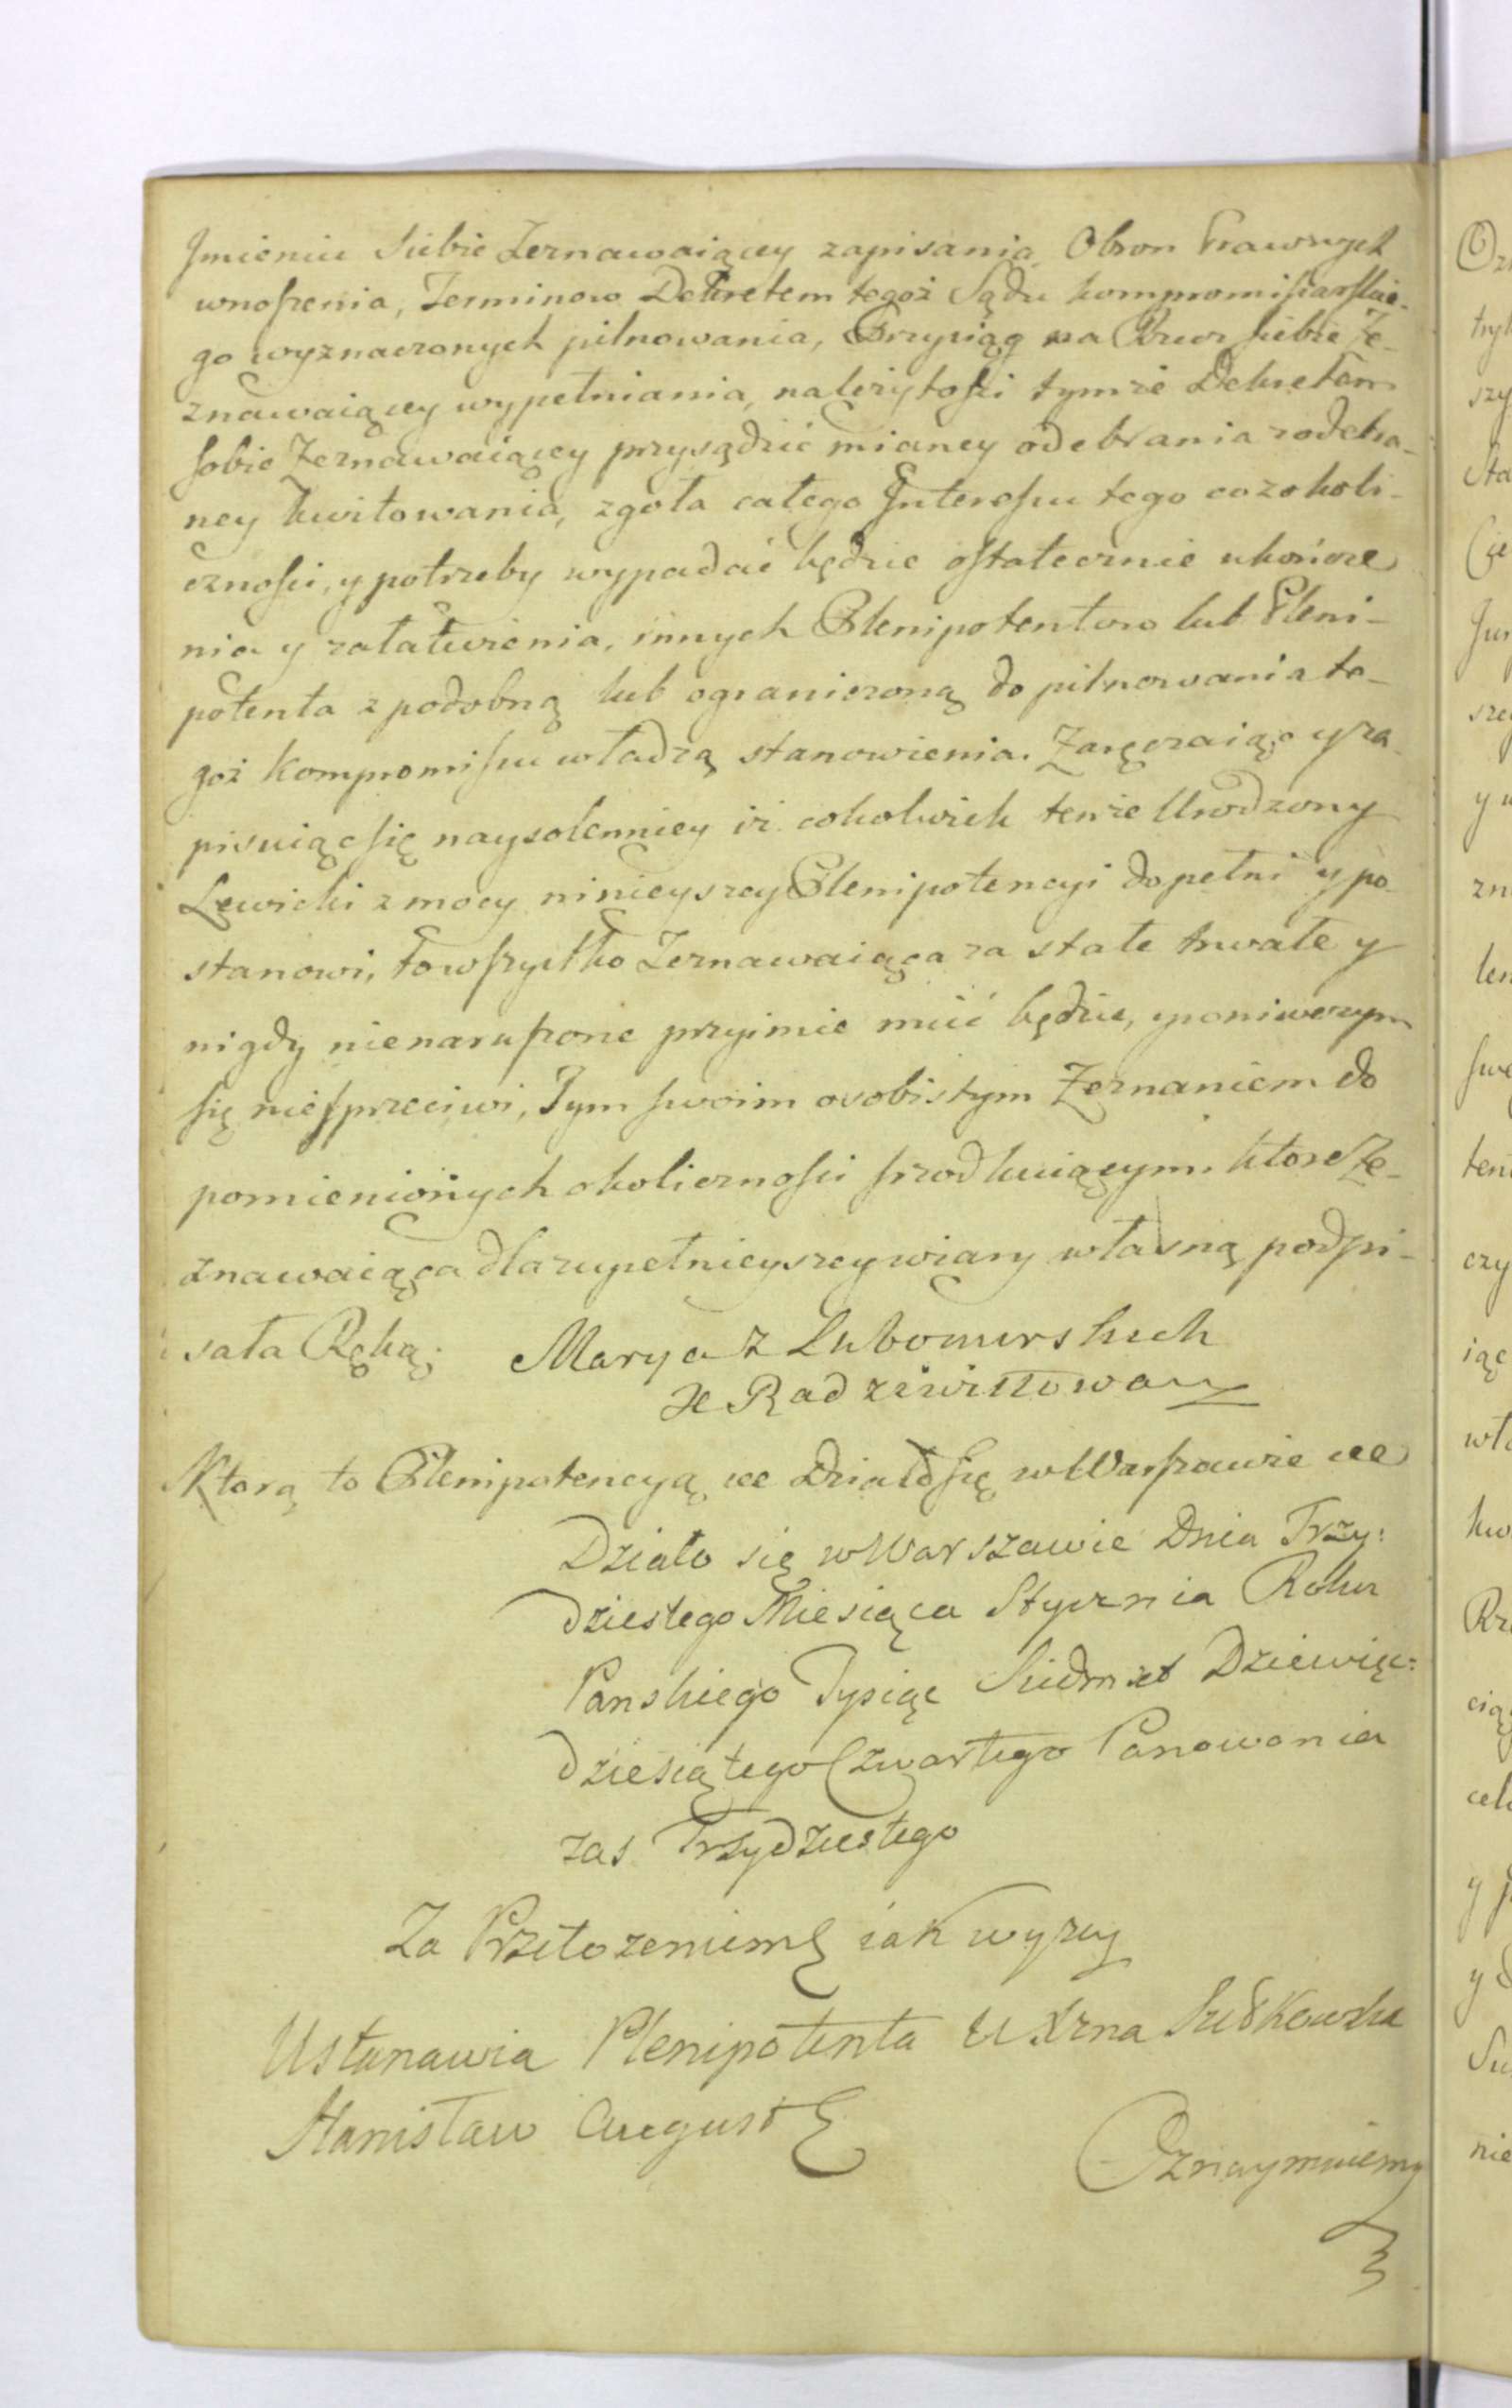 Jmieniu Siebie Zeznawaiącey zapisania, Obron Prawnych
wnoszenia, Terminow Dekretem tegoż Sądu kompromissarskie-
go wyznaczonych pilnowania, Przysiąg na Rzecz siebie Ze-
znawaiącey wypełniania, należytości tymże Dekretem
sobie Zeznawaiącey przysądzić mianey odebrania z odebra-
ney kwitowania, zgoła całego Jnteressu tego co z okoli-
czności, y potrzeby wypadać będzie ostatecznie ukończe
nia y załatwienia, innych Plenipotentow lub Pleni-
potenta z podobną lub ograniczoną do pilnowania te-
goż Kompromissu władzą stanowienia. Zaręczaiąc y za
pisuiąc się naysolenniey iż cokolwiek tenże Urodzony
Lewicki z mocy ninieyszey Plenipotencyi dopełni y po-
stanowi, to wszystko Zeznawaiąca za stałe trwałe y
nigdy nienaruszone przyimie mieć będzie, y oniwczym
się niesprzeciwi, Tym swoim osobistym Zeznaniem do
pomienionych okoliczności srzodkuiącym. które Ze-
znawaiąca dla zupełnieyszey wiary własną podpi-
sała Ręką. Marya z Lubomirskich
X Radziwiłłowa
Ktorą to Plenipotencyą etc Działo się w Warszawie etc
Działo się w Warszawie Dnia Trzy:
dziestego Miesiąca Stycznia Roku
Panskiego Tysiąc Siedmset Dziewięc:
dziesiątego Czwartego Panowania
zas Trzydziestego
Za Przełozeniem jak wyzey
Ustanawia Plenipotenta Xżna Sułkowska
Stanisław August
Oznaymuiemy